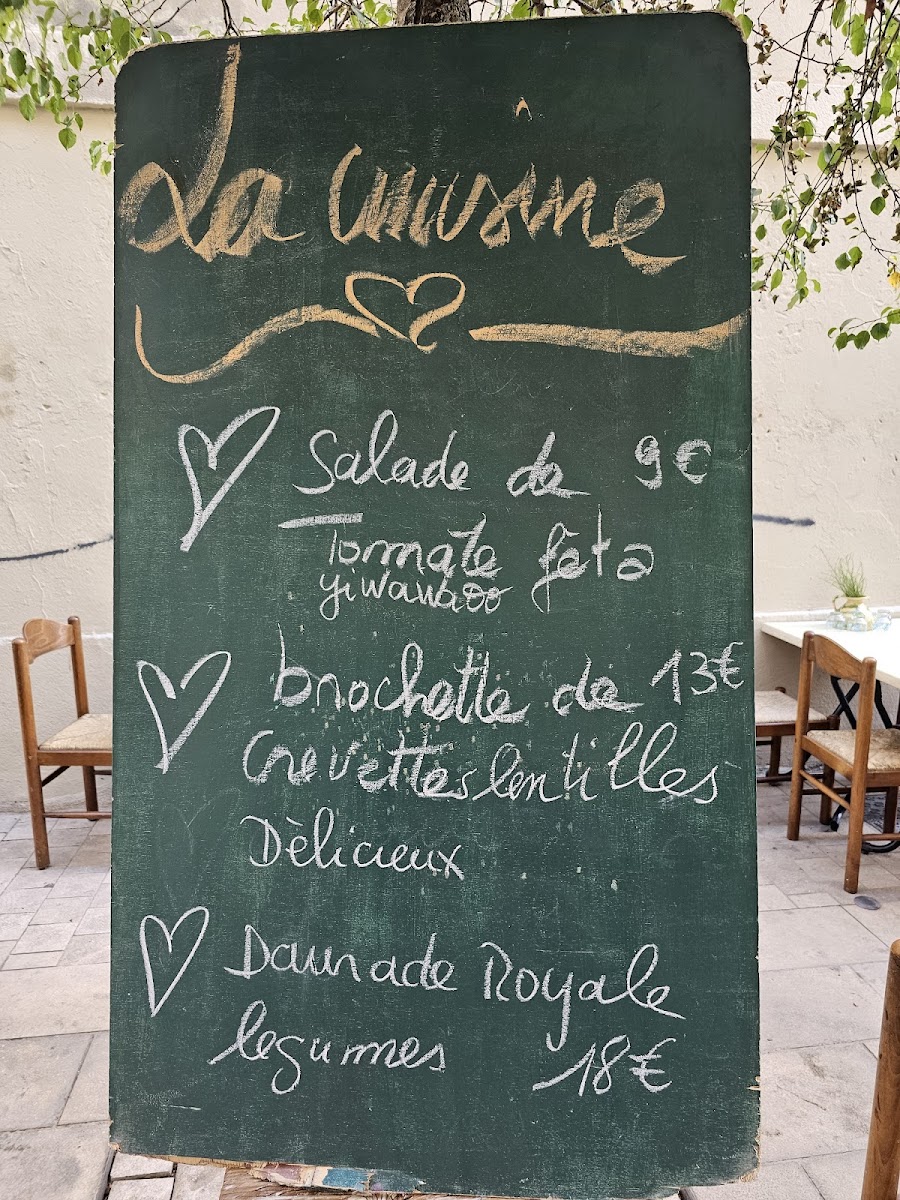 La Cuisine
Salade de 9€
Tomate fèta
brochette de 13€
Crevettes lentilles
Dèlicieux
Daurade Royale
legumes 18€